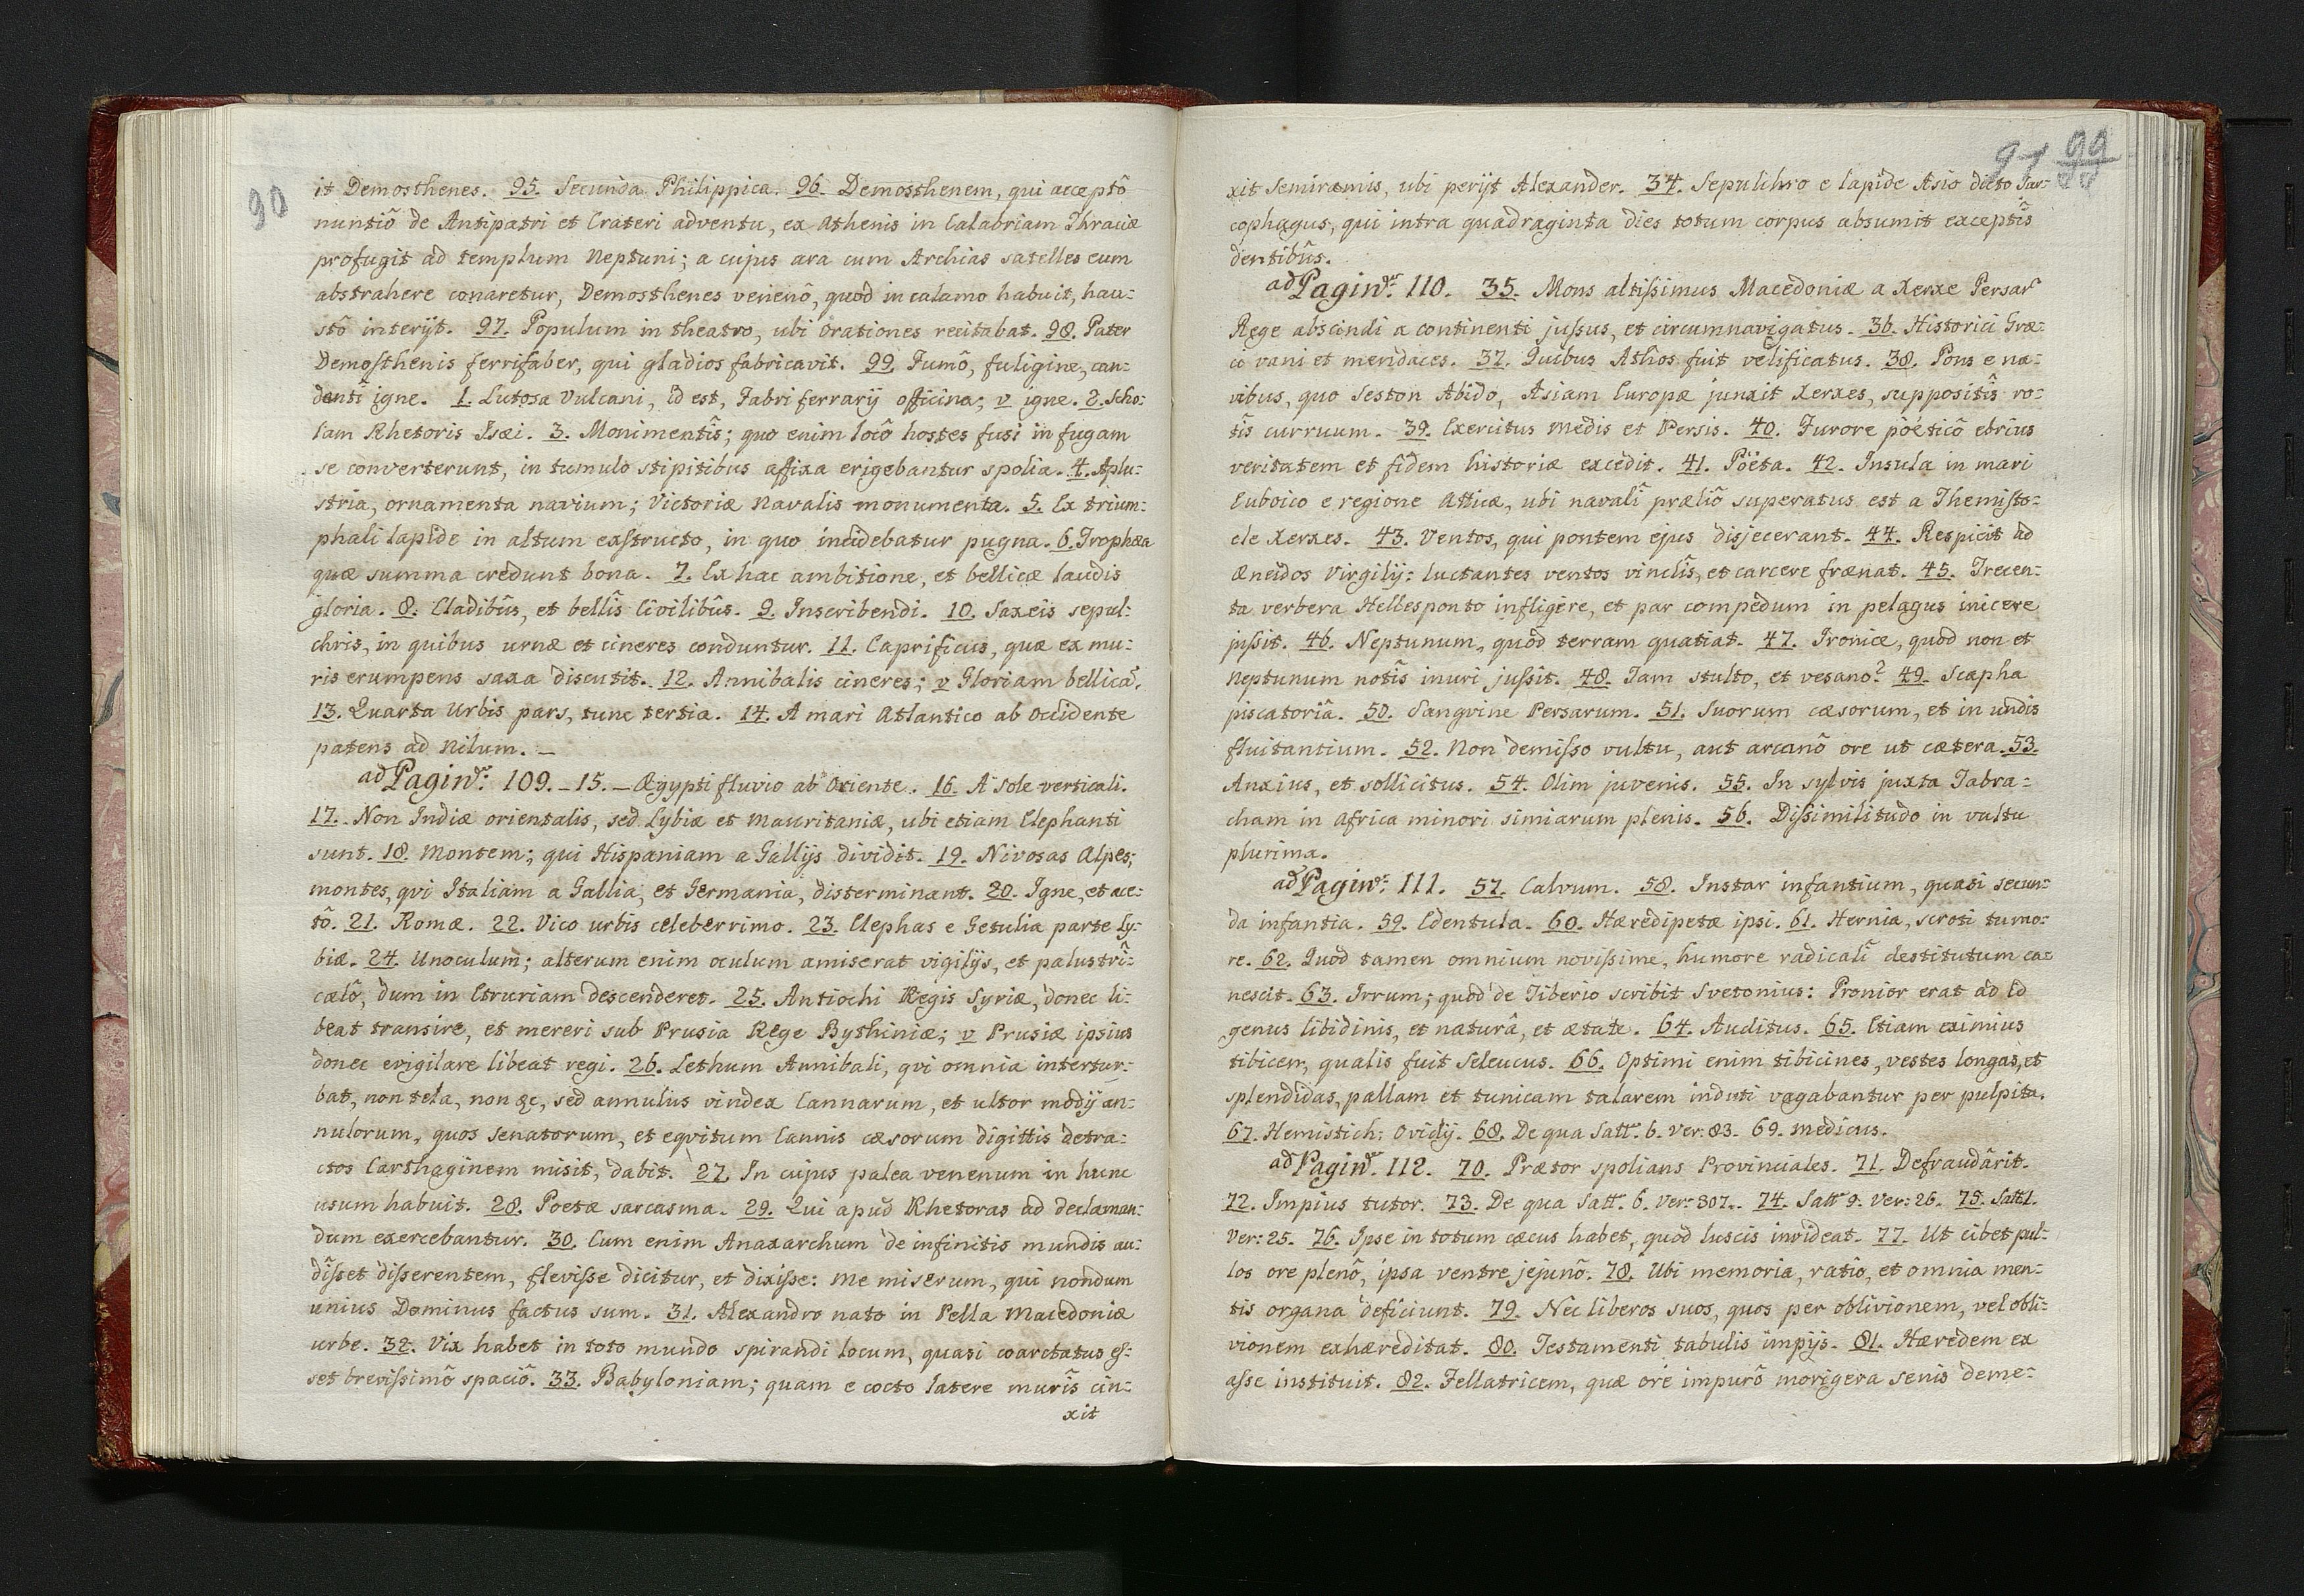 90
it Demosthenes. 95. Secunda Philippica. 96. Demosthenem, qui acceptô
nuntiô de Antipatri et Crateri adventu, ex Athenis in Calabriam Thraciæ
profugit ad templum Neptuni; a cujus ara cum Archias satelles eum
abstrahere conaretur, Demosthenes venenô, quod in calamo habuit, hau:
stô interijt. 97. Populum in theatro, ubi Orationes recitabat. 98. Pater
Demosthenis ferrifaber, qui gladios fabricavit. 99. Fumô, fuligine, can:
denti igne. 1. Lutosa Vulcani, id est, Fabri ferrarij officina; v igne. 2. Scho:
lam Rhetoris Isæi. 3. Monimentîs; quo enim locô hostes fusi in fugam
se converterunt, in tumulo stipitibus affixa erigebantur spolia. 4. Aplu:
stria, ornamenta navium; Victoriæ Navalis monumenta. 5. Ex trium:
phali lapide in altum exstructo, in quo incidebatur pugna. 6. Trophæa
quæ summa credunt bona. 7. Ex hac ambitione, et bellicæ laudis
gloria. 8. Cladibûs, et bellîs Civilibûs. 9. Inscribendi. 10. Saxeis sepul:
chris, in quibus urnæ et cineres conduntur. 11. Caprificus, quæ ex mu:
ris erumpens saxa discutit. 12. Annibalis cineres; v Gloriam bellicã.
13. Quarta Urbis pars, tunc tertia. 14. A mari Atlantico ab Occidente
patens ad Nilum. _
ad Paginã: 109. _ 15. _ Ægypti fluvio ab Oriente. 16. A Sole verticali.
17. Non Indiæ orientalis, sed Lybiæ et Mauritaniæ, ubi etiam Elephanti
sunt. 18. Montem; qui Hispaniam a Gallijs dividit. 19. Nivosas Alpes;
montes, qvi Italiam a Gallia, et Germania, disterminant. 20. Igne, et ace:
tô. 21. Romæ. 22. Vico urbis celeberrimo. 23. Elephas e Getulia parte Ly:
biæ. 24. Unoculum; alterum enim oculum amiserat vigilijs, et palustrî:
cælô, dum in Etruriam descenderet. 25. Antiochi Regis Syriæ, donec li:
beat transire, et mereri sub Prusia Rege Bythiniæ; v Prusiæ ipsius
donec evigilare libeat regi. 26. Lethum Annibali, qvi omnia intertur:
bat, non tela, non &c, sed annulus vindex Cannarum, et ultor modij an:
nulorum, quos Senatorum, et eqvitum Cannis cæsorum digittis detra:
ctos Carthaginem misit, dabit. 27. In cujus palea venenum in hunc
usum habuit. 28. Poetæ sarcasma. 29. Qui apud Rhetoras ad declaman:
dum exercebantur. 30. Cum enim Anaxarchum de infinitis mundis au:
disset disserentem, flevisse dicitur, et dixisse: Me miserum, qui nondum
unius Dominus factus sum. 31. Alexandro nato in Pella Macedoniæ
urbe. 32. Vix habet in toto mundo spirandi locum, quasi coarctatus es:
set brevissimô spaciô. 33. Babyloniam; quam e cocto latere murîs cin:
xit
91 99
xit Semiramis, ubi perijt Alexander. 34. Sepulchro e lapide Asio dicto Sar:
cophagus, qui intra quadraginta dies totum corpus absumit exceptîs
dentibûs.
ad Paginã: 110. 35. Mons altissimus Macedoniæ a Xerxe Persarũ
Rege abscindi a continenti jussus, et circumnavigatus. 36. Historici Græ:
ci vani et mendaces. 37. Quibus Athos fuit velificatus. 38. Pons e na:
vibus, quo Seston Abido, Asiam Europæ junxit Xerxes, suppositîs ro:
tîs curruum. 39. Exercitus Medis et Persis. 40. Furore poëticô ebrius
veritatem et fidem historiæ excedit. 41. Poëta. 42. Insula in mari
Euboico e regione Atticæ, ubi navalî præliô superatus est a Themisto:
cle Xerxes. 43. Ventos, qui pontem ejus disjecerant. 44. Respicit ad
Æneidos Virgilij: luctantes ventos vinclîs, et carcere frænat. 45. Trecen:
ta verbera Hellesponto infligere, et par compedum in pelagus inicere
jussit. 46. Neptunum, quòd terram quatiat. 47. Ironicè, quod non et
Neptunum notîs inuri jussit. 48. Tam stulto, et vesano? 49. Scapha
piscatoriâ. 50. Sangvine Persarum. 51. Suorum cæsorum, et in undis
fluitantium. 52. Non demisso vultu, aut arcanô ore ut cætera. 53.
Anxius, et sollicitus. 54. Olim juvenis. 55. In sylvis juxta Tabra:
cham in Africa minori simiarum plenis. 56. Dissimilitudo in vultu
plurima.
ad Paginã: 111. 57. Calvum. 58. Instar infantium, quasi secun:
da infantia. 59. Edentula. 60. Hæredipetæ ipsi. 61. Hernia, scroti tumo:
re. 62. Quod tamen omnium novissime, humore radicalî destitutum ca:
nescit. 63. Irrum; quod de Tiberio scribit Svetonius: Pronior erat ad id
genus libidinis, et naturâ, et ætate. 64. Auditus. 65. Etiam eximius
tibicen, qualis fuit Seleucus. 66. Optimi enim tibicines, vestes longas, et
splendidas, pallam et tunicam talarem induti vagabantur per pulpita.
67. Hemistich: Ovidij. 68. De qua Satt: 6. Ver: 83. 69. Medicus.
ad Paginã: 112. 70. Prætor spolians Provinciales. 71. Defraudârit.
72. Impius tutor. 73. De qua Satt: 6. Ver: 307. 74. Satt: 9. Ver: 26. 75. Satt: 1.
Ver: 25. 76. Ipse in totum cæcus habet, quod luscis invideat. 77. Ut cibet pul:
los ore plenô, ipsa ventre jejunô. 78. Ubi memoria, ratio, et omnia men:
tis organa deficiunt. 79. Nec liberos suos, quos per oblivionem, vel obli:
vionem exhæreditat. 80. Testamenti tabulis impijs. 81. Hæredem ex
asse instituit. 82. Fellatricem, quæ ore impurô morigera senis deme: